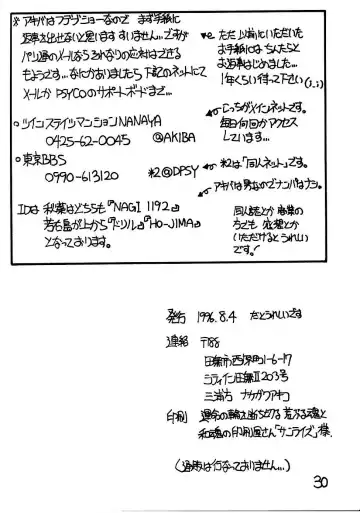 ※ アキバはフデブショーなので まず手紙に
返事を出せないと思います すいません…ですが
パソ通のメールならそれなりの応対はできる
もようです…なにかありましたら下記のネットにて
メールか PSYCOのサポートボードまで…
ただ 以前にいただいた
お手紙には ちんたらと
お返事はじめました…
1年くらい待って下さい(;_;)
○ツインステイツマンションNANAYA
0425-62-0045 @AKIBA
こっちがメインネットです。
毎日何回かアクセス
しています…
○東京BBS
0990-613120 *2@DPSY
*2は「同人ネット」です。
アキバは男なのでナンパはナシ。
IDは 秋葉はどちらも『NAGI 1192』
芳も島が上から『ドリル』『HO-JIMA』
となっております。
同人誌とか 商業の
方でも 応援とか
いただけるとうれしい
です。
発行 1996.8.4 だとうれしいです
連絡 〒188
田無市西原町1-6-17
シティイン田無Ⅱ203号
三浦方 ナカザワアキコ
印刷 運命の輪 荒ぶる魂と
和魂の印刷屋さん「サンライズ」様.
(通販は行なっておりません…)
30